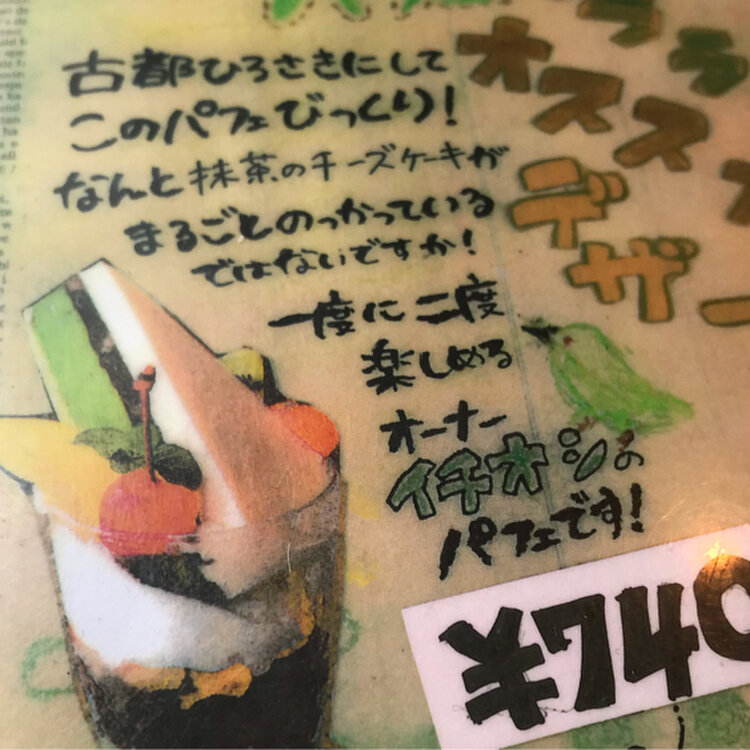 うら
オススメ
デザー
古都ひろさきにして
このパフェびっくり!
なんと抹茶のチーズケーキが
まるごとのっかっている
ではないですか!
一度に二度
楽しめる
オーナー
イチオシの
パフェです!